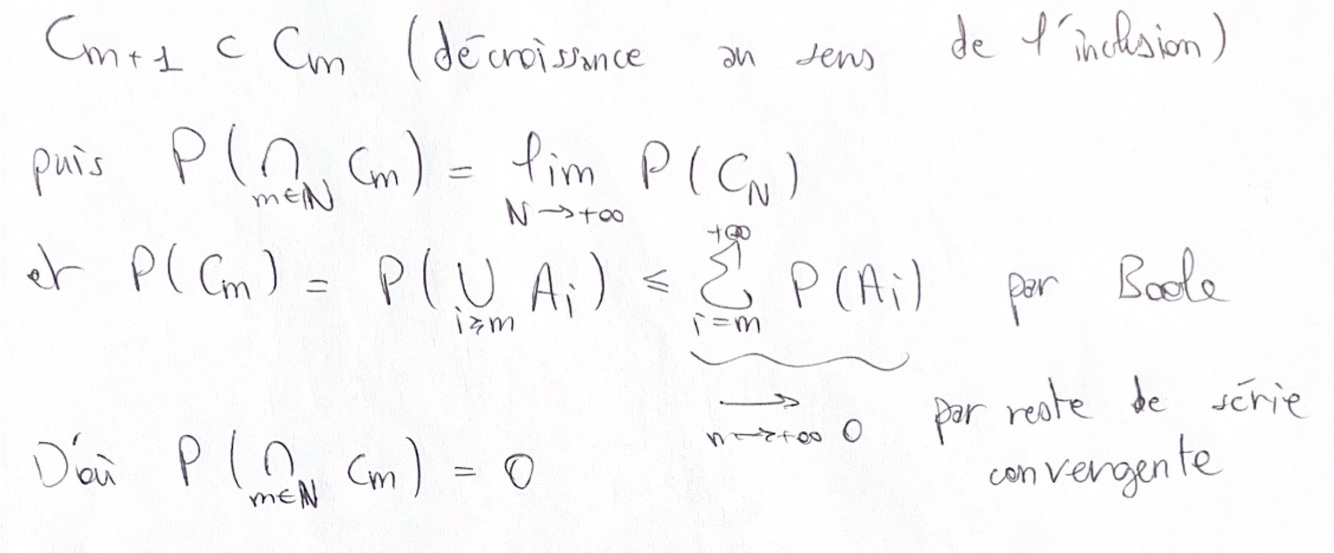 C_{m+1} ⊂ C_m (décroissance au sens de l'inclusion)
puis P(⋂_{m∈ℕ} C_m) = lim_{N→+∞} P(C_N)
et P(C_m) = P(⋃_{i≥m} A_i) ≤ ∑_{i=m}^{+∞} P(A_i) par Boole
⟶_{n→+∞} 0 par reste de série convergente
D'où P(⋂_{m∈ℕ} C_m) = 0